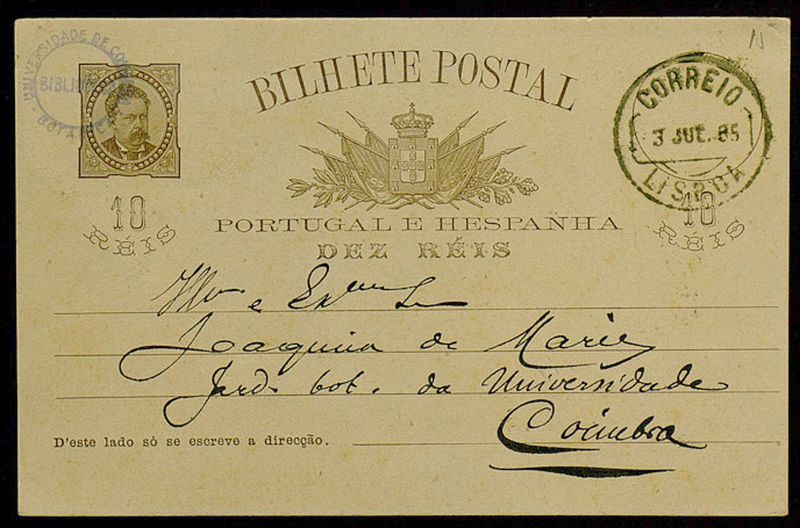 UNIVERSIDADE DE CO
BIBLIO
BOTANICA
BILHETE POSTAL
CORREIO
3 JUL. 85
LISBOA
10
RÉIS
10
RÉIS
PORTUGAL E HESPANHA
DEZ RÉIS
Illmo. e Exmo. Sr.
Joaquim de Mariz
Jard. bot. da Universidade
Coimbra
D'este lado só se escreve a direcção.